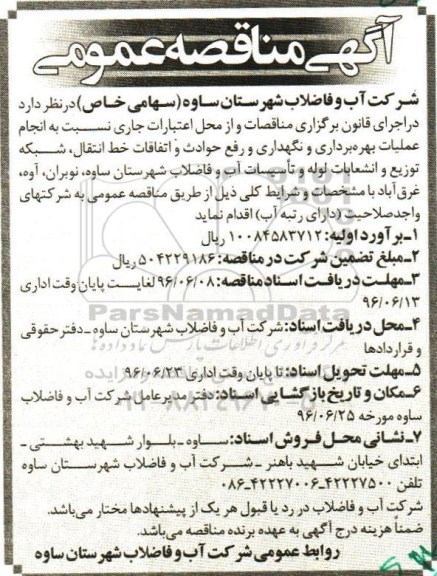 آگهی مناقصه عمومی
شرکت آب و فاضلاب شهرستان ساوه (سهامی خاص) در نظر دارد
در اجرای قانون برگزاری مناقصات و از محل اعتبارات جاری نسبت به انجام
عملیات بهره‌برداری و نگهداری و رفع حوادث و اتفاقات خط انتقال، شبکه
توزیع و انشعابات لوله و تأسیسات آب و فاضلاب شهرستان ساوه، نوبران، آوه،
غرق‌آباد با مشخصات و شرایط کلی ذیل از طریق مناقصه عمومی به شرکتهای
واجد صلاحیت (دارای رتبه آب) اقدام نماید
۱ـ برآورد اولیه: ۱۰۰۸۴۵۸۳۷۱۲ ریال
۲ـ مبلغ تضمین شرکت در مناقصه: ۵۰۴۲۲۹۱۸۶ ریال
۳ـ مهلت دریافت اسناد مناقصه: ۹۶/۰۶/۰۸ لغایت پایان وقت اداری
۹۶/۰۶/۱۳
ParsNamadData
۴ـ محل دریافت اسناد: شرکت آب و فاضلاب شهرستان ساوه ـ دفتر حقوقی
و قراردادها
مرکز فرآوری اطلاعات پارس نماد داده‌ها
۵ـ مهلت تحویل اسناد: تا پایان وقت اداری ۹۶/۰۶/۲۳
۶ـ مکان و تاریخ بازگشایی اسناد: دفتر مدیرعامل شرکت آب و فاضلاب
ساوه مورخه ۹۶/۰۶/۲۵
۷ـ نشانی محل فروش اسناد: ساوه ـ بلوار شهید بهشتی ـ
ابتدای خیابان شهید باهنر ـ شرکت آب و فاضلاب شهرستان ساوه
تلفن ۴۲۲۲۷۵۰۰ـ۴۲۲۲۷۰۰۶ـ۰۸۶
شرکت آب و فاضلاب در رد یا قبول هر یک از پیشنهادها مختار می‌باشد.
ضمناً هزینه درج آگهی به عهده برنده مناقصه می‌باشد.
روابط عمومی شرکت آب و فاضلاب شهرستان ساوه